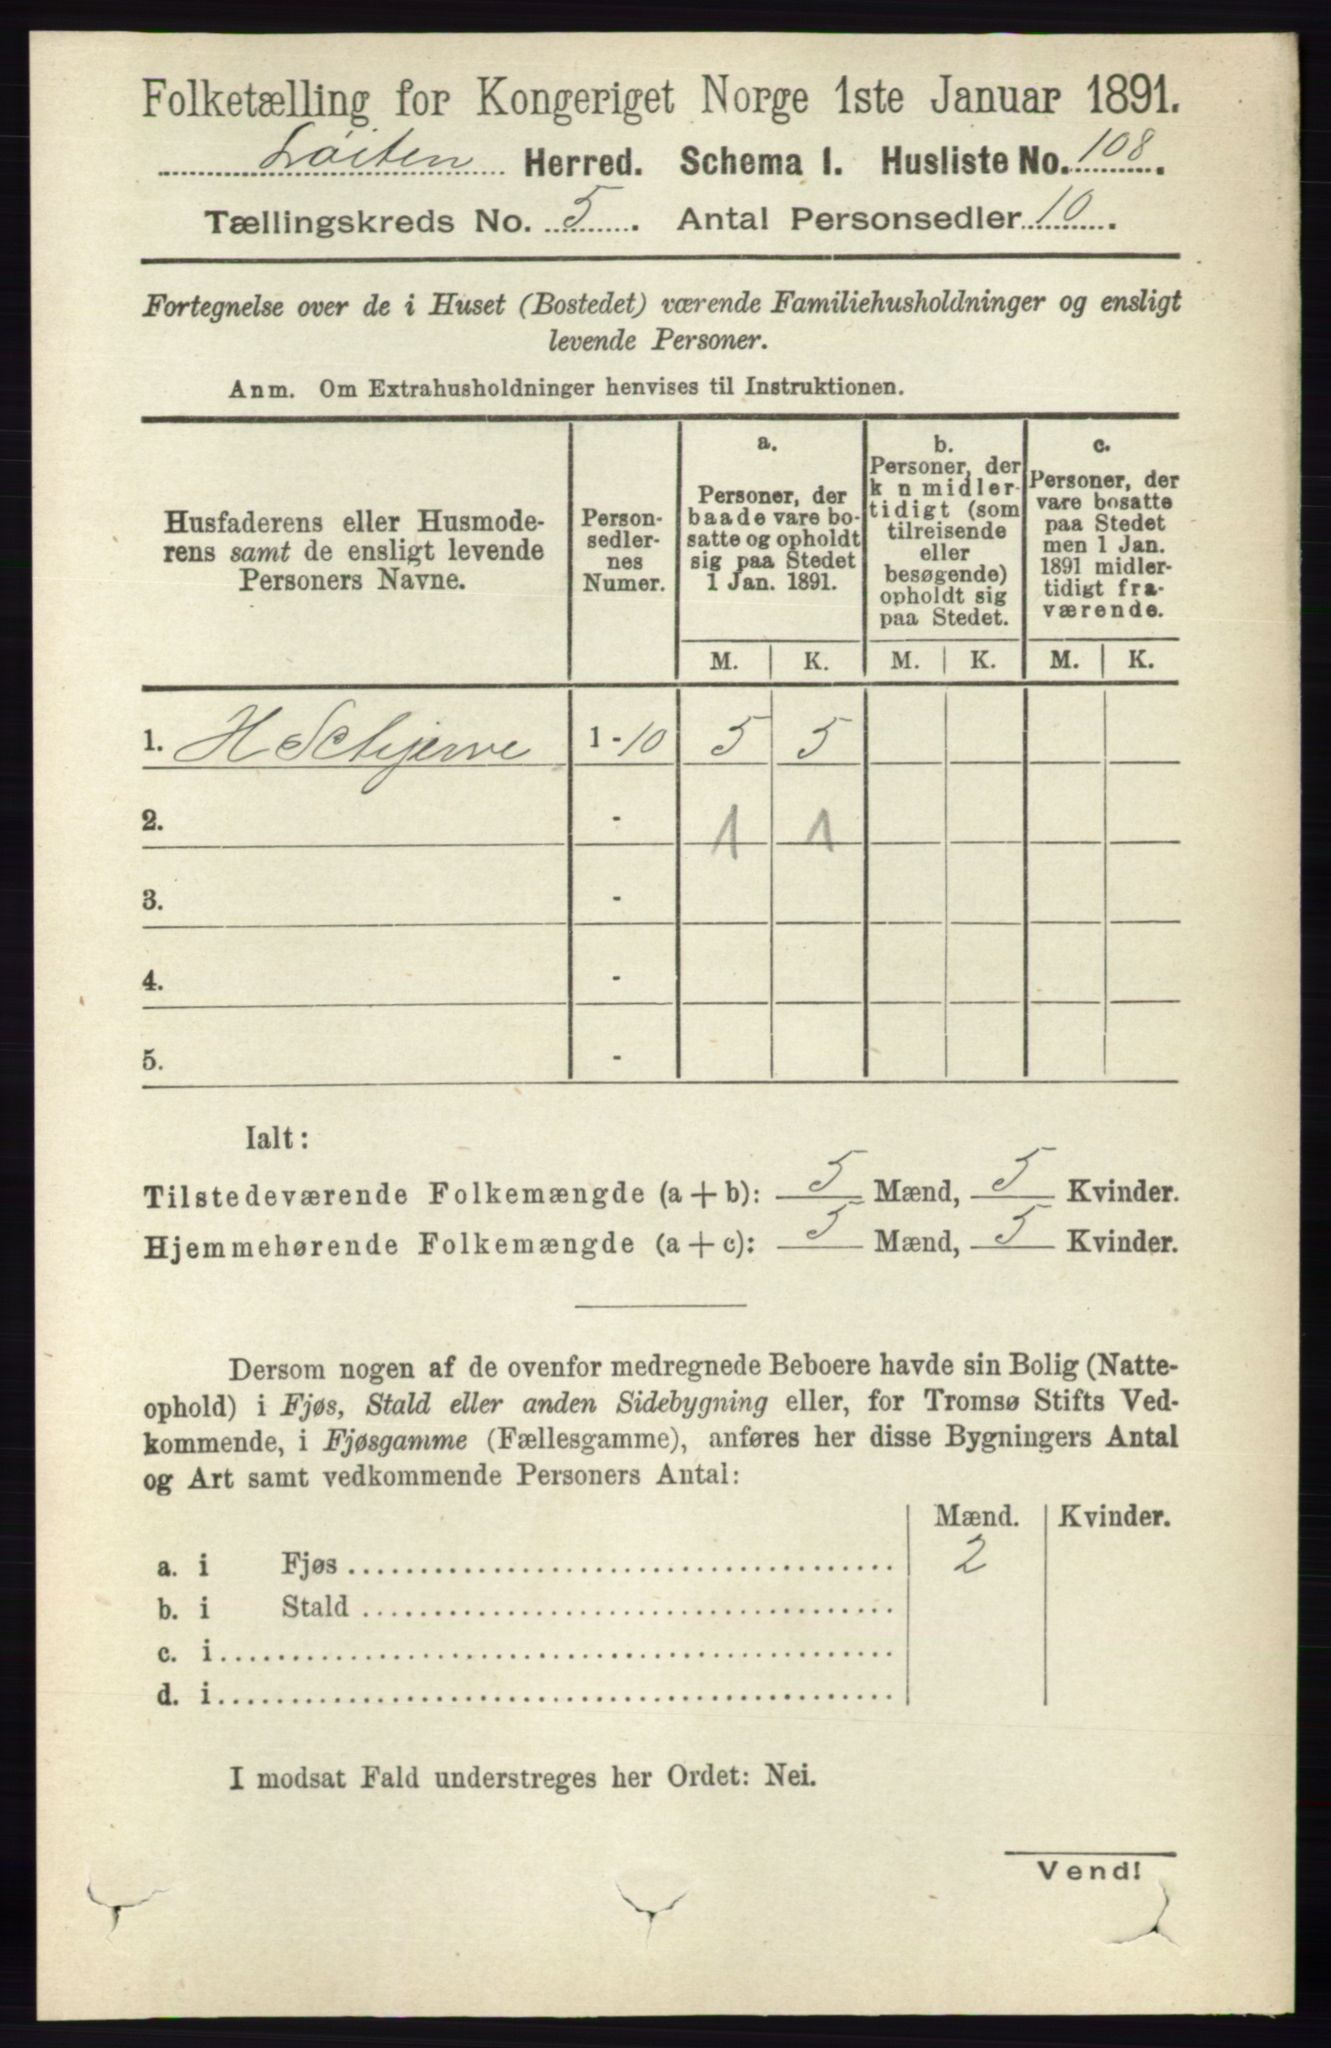 Folketælling for Kongeriget Norge 1ste Januar 1891.
Løiten Herred. Schema 1. Husliste No. 108.
Tællingskreds No. 5. Antal Personsedler 10.
Fortegnelse over de i Huset (Bostedet) værende Familiehusholdninger og ensligt
levende Personer.
Anm. Om Extrahusholdninger henvises til Instruktionen.
Husfaderens eller Husmode-
rens samt de ensligt levende
Personers Navne.
Person-
sedler-
nes
Numer.
a.
Personer, der
baade vare bo-
satte og opholdt
sig paa Stedet
1 Jan. 1891.
b.
Personer, der
k n midler-
tidigt (som
tilreisende
eller
besøgende)
opholdt sig
paa Stedet.
c.
Personer, der
vare bosatte
paa Stedet
men 1 Jan.
1891 midler-
tidigt fra-
værende.
M. K. M. K. M. K.
1. H Schjerve 1 - 10 5 5
2. - 1 1
3. -
4. -
5. -
Ialt:
Tilstedeværende Folkemængde (a + b): 5 Mænd, 5 Kvinder.
Hjemmehørende Folkemængde (a + c): 5 Mænd, 5 Kvinder.
Dersom nogen af de ovenfor medregnede Beboere havde sin Bolig (Natte-
ophold) i Fjøs, Stald eller anden Sidebygning eller, for Tromsø Stifts Ved-
kommende, i Fjøsgamme (Fællesgamme), anføres her disse Bygningers Antal
og Art samt vedkommende Personers Antal:
Mænd. Kvinder.
a. i Fjøs 2
b. i Stald
c. i
d. i
I modsat Fald understreges her Ordet: Nei.
Vend!